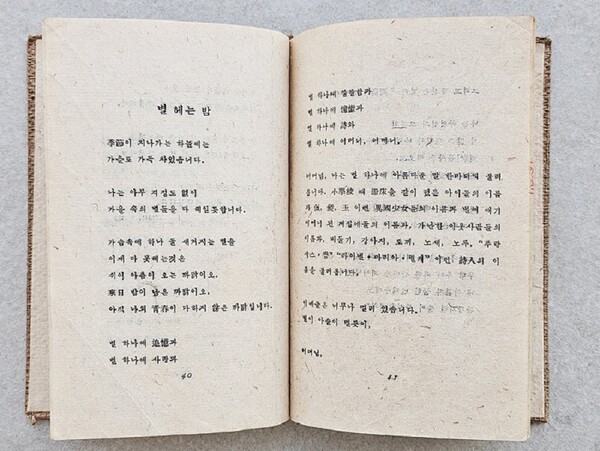 별 헤는 밤
季節이 지나가는 하늘에는
가을로 가득 차있습니다.
나는 아무 걱정도 없이
가을 속의 별들을 다 헤일듯합니다.
가슴속에 하나 둘 새겨지는 별을
이제 다 못헤는것은
쉬이 아츰이 오는 까닭이오,
來日 밤이 남은 까닭이오,
아직 나의 靑春이 다하지 않은 까닭입니다.
별 하나에 追憶과
별 하나에 사랑과
40
별 하나에 쓸쓸함과
별 하나에 憧憬과
별 하나에 詩와
별 하나에 어머니, 어머니,
어머님, 나는 별 하나에 아름다운 말 한마디씩 불러
봅니다. 小學校 때 冊床을 같이 했든 아이들의 이름
과 佩, 鏡, 玉 이런 異國少女들의 이름과 벌써 애기
어머니 된 계집애들의 이름과, 가난한 이웃사람들의
이름과, 비둘기, 강아지, 토끼, 노새, 노루,
「라이넬·마리아·릴케」 이런 詩人의 이
름을 불러봅니다.
이네들은 너무나 멀리 있습니다.
별이 아슬이 멀듯이,
어머님,